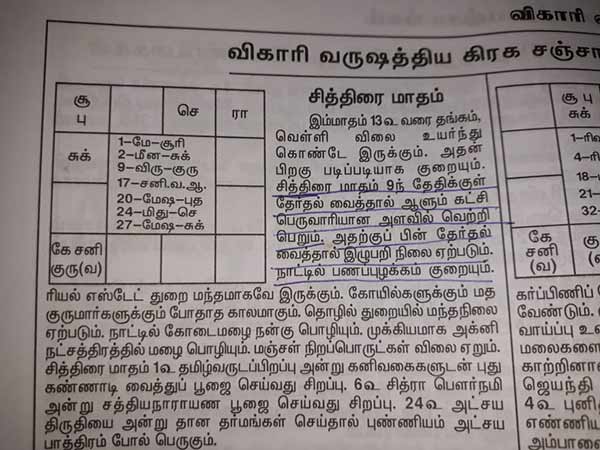 விகாரி
விகாரி வருஷத்திய கிரக சஞ்சா
சூ
பு
செ
ரா
சுக்
1–மே–சூரி
2–மீன–சுக்
9–விரு–குரு
17–சனி.வ.ஆ.
20–மேஷ–புத
24–மிது–செ
27–மேஷ–சுக்
கே சனி
குரு(வ)
சித்திரை மாதம்
இம்மாதம் 13௳ வரை தங்கம்,
வெள்ளி விலை உயர்ந்து
கொண்டே இருக்கும். அதன்
பிறகு படிப்படியாக குறையும்.
சித்திரை மாதம் 9ந் தேதிக்குள்
தேர்தல் வைத்தால் ஆளும் கட்சி
பெருவாரியான அளவில் வெற்றி
பெறும். அதற்குப் பின் தேர்தல்
வைத்தால் இழுபறி நிலை ஏற்படும்.
நாட்டில் பணப்புழக்கம் குறையும்.
ரியல் எஸ்டேட் துறை மந்தமாகவே இருக்கும். கோயில்களுக்கும் மத
குருமார்களுக்கும் போதாத காலமாகும். தொழில் துறையில் மந்தநிலை
ஏற்படும். நாட்டில் கோடைமழை நன்கு பொழியும். முக்கியமாக அக்னி
நட்சத்திரத்தில் மழை பொழியும். மஞ்சள் நிறப்பொருட்கள் விலை ஏறும்.
சித்திரை மாதம் 1௳ தமிழ்வருடப்பிறப்பு அன்று கனிவகைகளுடன் புது
கண்ணாடி வைத்துப் பூஜை செய்வது சிறப்பு. 6௳ சித்ரா பௌர்நமி
அன்று சத்தியநாராயண பூஜை செய்வது சிறப்பு. 24௳ அட்சய
திருதியை அன்று தான தர்மங்கள் செய்தால் புண்ணியம் அட்சய
பாத்திரம் போல் பெருகும்.
சூ பு
சுக்
1–ரி
4–ரி
18–
21–
32–
கே
சனி
(வ)
கு
(
கர்ப்பிணிப்
வேண்டும்.
வாய்ப்பு உ
மலைகளை
காற்றினா
ஜெயந்தி
4௳ புனித
எண்ணிய
அம்பாலை